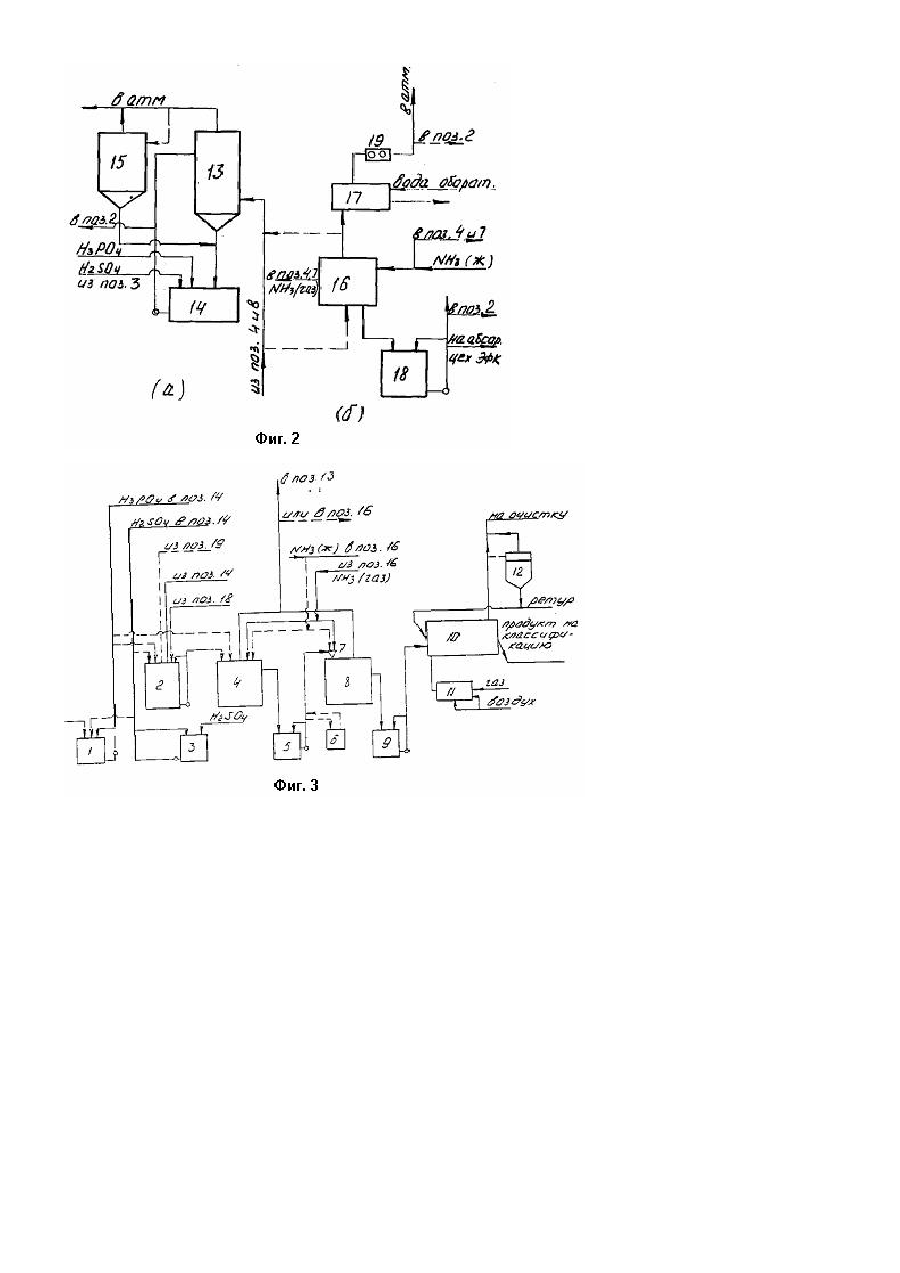 в атм
15
13
в поз.2
H3PO4
H2SO4
из поз. 3
14
(а)
в атм.
в поз. 2
19
вода оборат.
17
в поз. 4 и 7
NH3 (ж)
в поз. 4,7
NH3 (газ)
16
из поз. 4 и 8
в поз. 2
на абсор.
цех ЭФК
18
(б)
Фиг. 2
H3PO4 в поз. 14
H2SO4 в поз. 14
из поз. 19
из поз. 14
из поз. 18
в поз. 13
или в поз. 16
NH3 (ж) в поз. 16
из поз. 16
NH3 (газ)
на очистку
12
ретур
продукт на
классифи-
кацию
10
11
газ
воздух
1
2
3
H2SO4
4
5
6
7
8
9
Фиг. 3